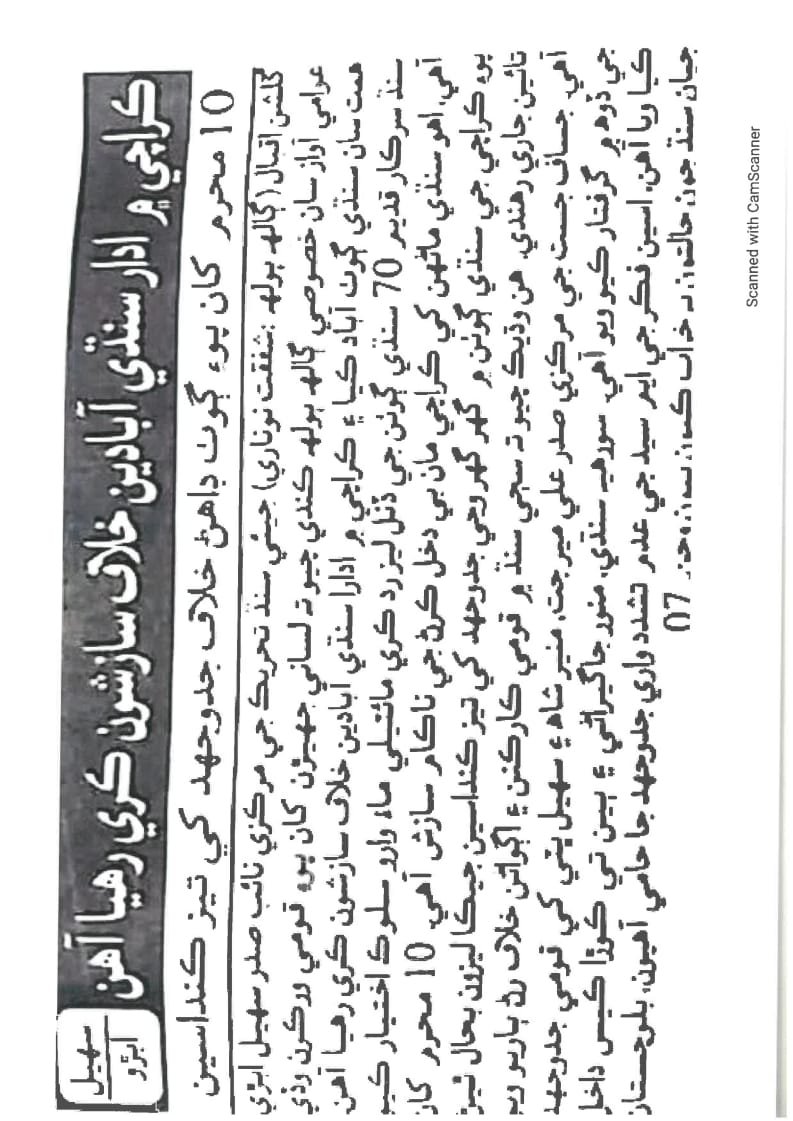 سهيل ابڙو
ڪراچي ۾ ادارا سنڌي آبادين خلاف سازشون ڪري رهيا آهن
10 محرم کان پوءِ ڳوٺ ڊاهڻ خلاف جدوجهد کي تيز ڪنداسين
گلشن اقبال (ڳالهه ٻولهه :شفقت نوناري) جيئي سنڌ تحريڪ جي مرڪزي نائب صدر سهيل ابڙي
عوامي آواز سان خصوصي ڳالهه ٻولهه ڪندي چيو ته لساني جهيڙن کان پوءِ قومي ورڪرن وڏي
همت سان سنڌي ڳوٺ آباد ڪيا ۽ ڪراچي ۾ ادارا سنڌي آبادين خلاف سازشون ڪري رهيا آهن
سنڌ سرڪار قديم 70 سنڌي ڳوٺن جي ڏنل ليز رد ڪري مائٽيلي ماءُ وارو سلوڪ اختيار ڪيو
آهي، اهو سنڌي ماڻهن کي ڪراچي مان بي دخل ڪرڻ جي ناڪام سازش آهي. 10 محرم کان
پوءِ ڪراچي جي سنڌي ڳوٺن ۾ گهر گهر وڃي جدوجهد کي تيز ڪنداسين جيڪا ليزون بحال ٿيڻ
تائين جاري رهندي. هن وڌيڪ چيو ته سڄي سنڌ ۾ قومي ڪارڪنن ۽ اڳواڻن خلاف رڻ ٻاريو ويو
آهي. جساف جست جي مرڪزي صدر علي ميرجت، منير شاهه ۽ سهيل ڀٽي کي قومي جدوجهد
جي ڏوهه ۾ گرفتار ڪيو ويو آهي. سورهيه سنڌي، منور جاگيراڻي ۽ ٻين تي ڪوڙا ڪيس داخل
ڪيا ويا آهن، اسين فڪر جي ايم سيد جي عدم تشدد واري جدوجهد جا حامي آهيون، بلوچستان
جيان سنڌ جون حالتون نه خراب ڪيون
07
Scanned with CamScanner